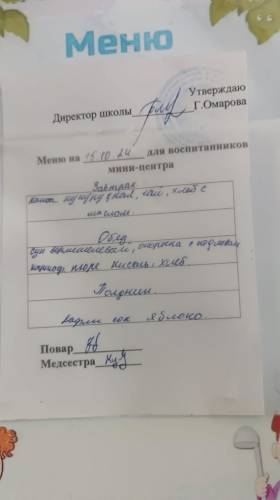 Меню
Утверждаю
Директор школы Г.Омарова
Меню на 15.10.24 для воспитанников
мини-центра
Завтрак
каша кукурузная, чай, хлеб с
маслом
Обед
суп вермишелевый, с
пюре кисель, хлеб
Полдник
вафли сок яблоко
Повар
Медсестра